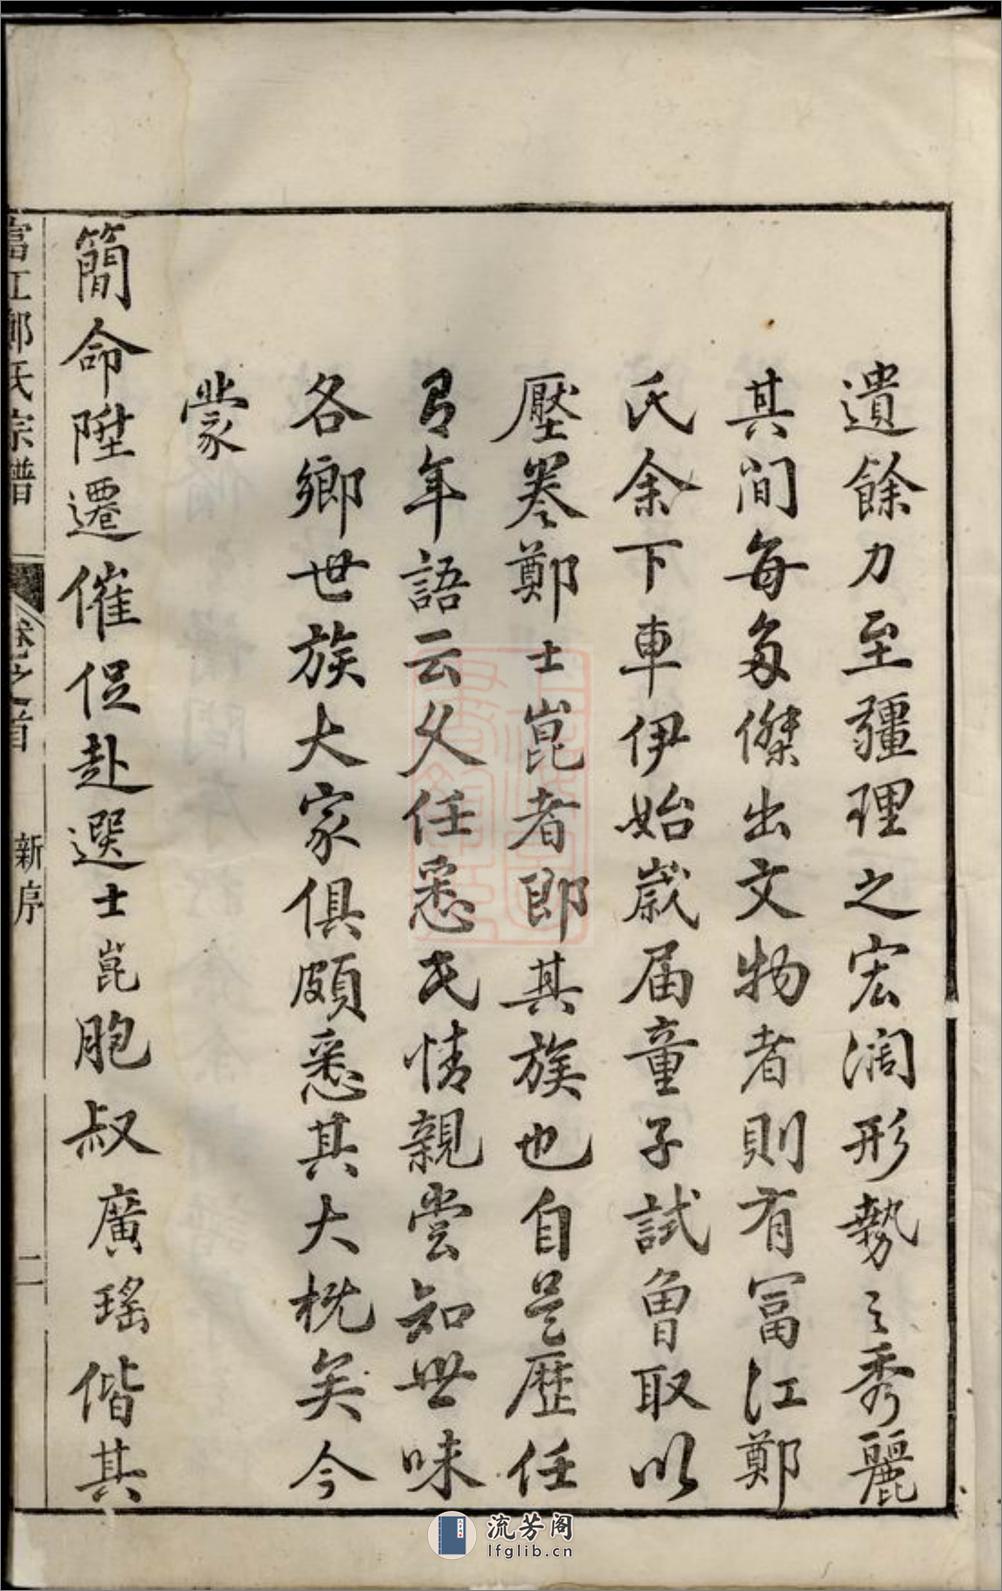 遺餘力至疆理之宏濶形勢之秀麗
其間每多傑出文物者則有富江鄭
氏余下車伊始歲届童子試曾取以
壓卷鄭士崑者即其族也自是歷任
有年語云久任悉民情親嘗知世味
各鄉世族大家俱頗悉其大槪矣今
蒙
簡命陞遷催促赴選士崑胞叔廣瑤偕其
富江鄭氏宗譜 卷之首 新序 二
流芳阁
lfglib.cn